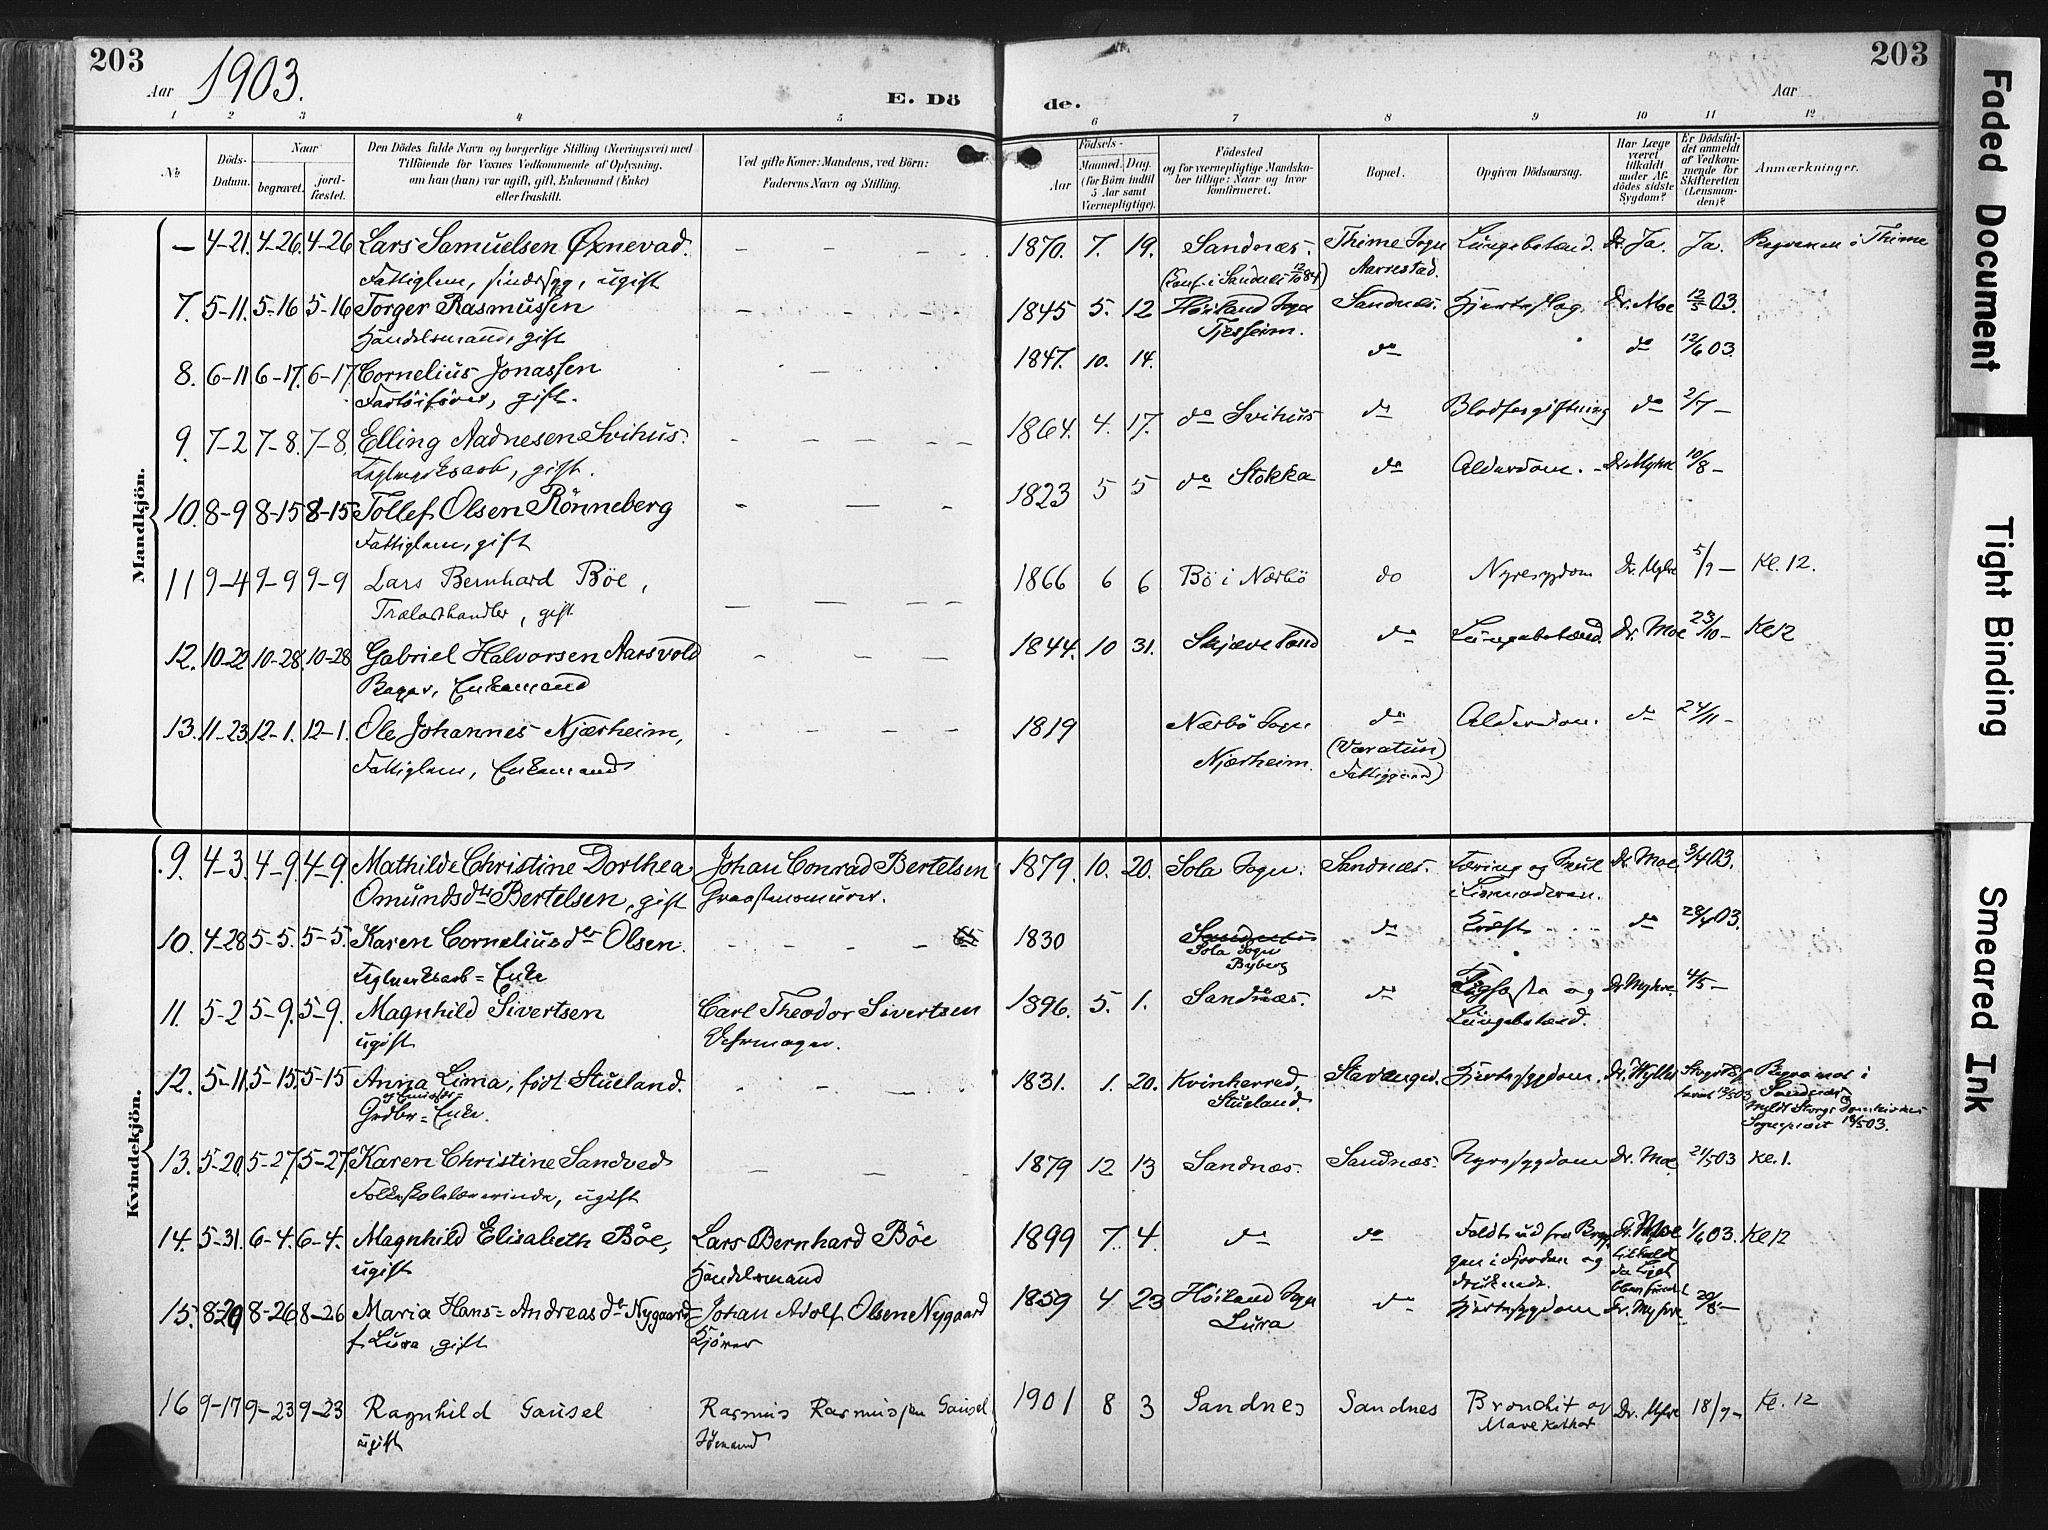 203
Aar 1903.
E. Dö
de.
Aar
203
1 2 3 4 5 6 7 8 9 10 11 12
№
Döds-Datum.
Naar
begravet.
jord-fæstet.
Den Dödes fulde Navn og borgerlige Stilling (Næringsvei) med
Tilföiende for Voxnes Vedkommende af Oplysning,
om han (hun) var ugift, gift, Enkemand (Enke)
eller fraskilt.
Ved gifte Koner: Mandens, ved Börn:
Faderens Navn og Stilling.
Födsels-
Aar
Maaned.
Dag.
(for Börn indtil
5 Aar samt
Værnepligtige).
Födested
og for værnepligtige Mandska-
ber tillige: Naar og hvor
konfirmeret.
Bopæl.
Opgiven Dödsaarsag.
Har Læge
været
tilkaldt
under Af-
dödes sidste
Sygdom?
Er Dödsfal-
det anmeldt
af Vedkom-
mende for
Skifteretten
(Lensman-
den)?
Anmærkninger.
Mandkjön.
– 4-21. 4-26. 4-26 Lars Samuelsen Øxnevad. 1870. 7. 19. Sandnæs. Thime Sogn Lungebetænd. Ja. Ja. i Thime
Fattiglem, sindssyg, ugift (Conf. i Sandnes 12/10 84) Aarrestad.
7. 5-11. 5-16 5-16 Torger Rasmussen 1845 5. 12 Höiland Sogn Sandnes. Hjerteslag. Dr. Moe 12/5 03.
Handelsmand, gift Tjessheim.
8. 6-11 6-17. 6-17. Cornelius Jonassen 1847. 10. 14. do do 12/6 03.
Fartöiförer, gift.
9. 7-2 7-8. 7-8. Elling Aadnesen Svihus. 1864. 4. 17. do Svihus do Blodforgiftning do 2/7 –
Teglverksarb, gift.
10. 8-9 8-15 8-15 Tollef Olsen Rönneberg 1823 5 5 do Stokka do Alderdom. Dr. Myhre 10/8 –
Fattiglem, gift
11 9-4 9-9 9-9 Lars Bernhard Böe, 1866 6 6 Bö i Nærbö do Nyresygdom Dr. Myhre 5/9 – Kl. 12.
Trælasthandler, gift
12. 10-22 10-28. 10-28 Gabriel Halvorsen Aarsvold 1844. 10 31. Skjæveland do Lungebetænd. Dr. Moe 23/10 – Kl 12
Bager, Enkemand
13. 11-23. 12-1. 12-1. Ole Johannes Njærheim, 1819 Nærbö Sogn do Alderdom. do 24/11 –
Fattiglem, Enkemand Njærheim. (Varatun Fattiggaard)
Kvindekjön.
9. 4-3. 4-9. 4-9. Mathilde Christine Dorthea Johan Conrad Bertelsen 1879. 10. 20. Sola Sogn. Sandnæs. Tæring og Dr. Moe 3/4 03.
Omundsdtr Bertelsen, gift Graastensmurer.
10. 4-28 5-5. 5-5. Karen Corneliusdtr Olsen. 1830 Sandnes do Kræft do 28/4 03.
Teglverksarb = Enke Sola Sogn Byberg
11. 5-2 5-9. 5-9. Magnhild Sivertsen Carl Theodor Sivertsen 1896. 5. 1. Sandnæs. do og Dr Myhre. 4/5 –
ugift Uhrmager. Lungebetænd.
12. 5-11. 5-15. 5-15 Anna Lima, født Stueland. 1831. 1. 20. Kvinherred, Stavanger. Hjertesygdom. i
Grdbr = Enke. Stueland. Sandnæs
Sognepræst
13. 5-20. 5-27. 5-27. Karen Christine Sandved 1879 12 13 Sandnæs. Sandnæs. Nyresygdom Dr. Moe 21/5 03 Kl. 1.
Folkeskolelærerinde, ugift
14. 5-31. 6-4. 6-4. Magnhild Elisabeth Böe, Lars Bernhard Böe 1899 7. 4. do do Faldt ud fra Bryg- 1/6 03. Kl 12
ugift Handelsmand gen i Fjorden og druknede.
15. 8-20 8-26 8-26 Maria Hans = Andreasdtr Nygaard = Johan Adolf Olsen Nygaard 1859 4 23 Höiland Sogn do Hjertesygdom Dr. Myhre. 20/8 –
f. Lura, gift Kjörer Lura
16 9-17 9-23 9-23 Ragnhild Gausel Rasmus Rasmussen Gausel 1901 8 3 Sandnes Sandnes Bronchit og Dr. Myhre 18/9 – Kl. 12
ugift Sömand Mavekathar
Faded Document
Tight Binding
Smeared Ink